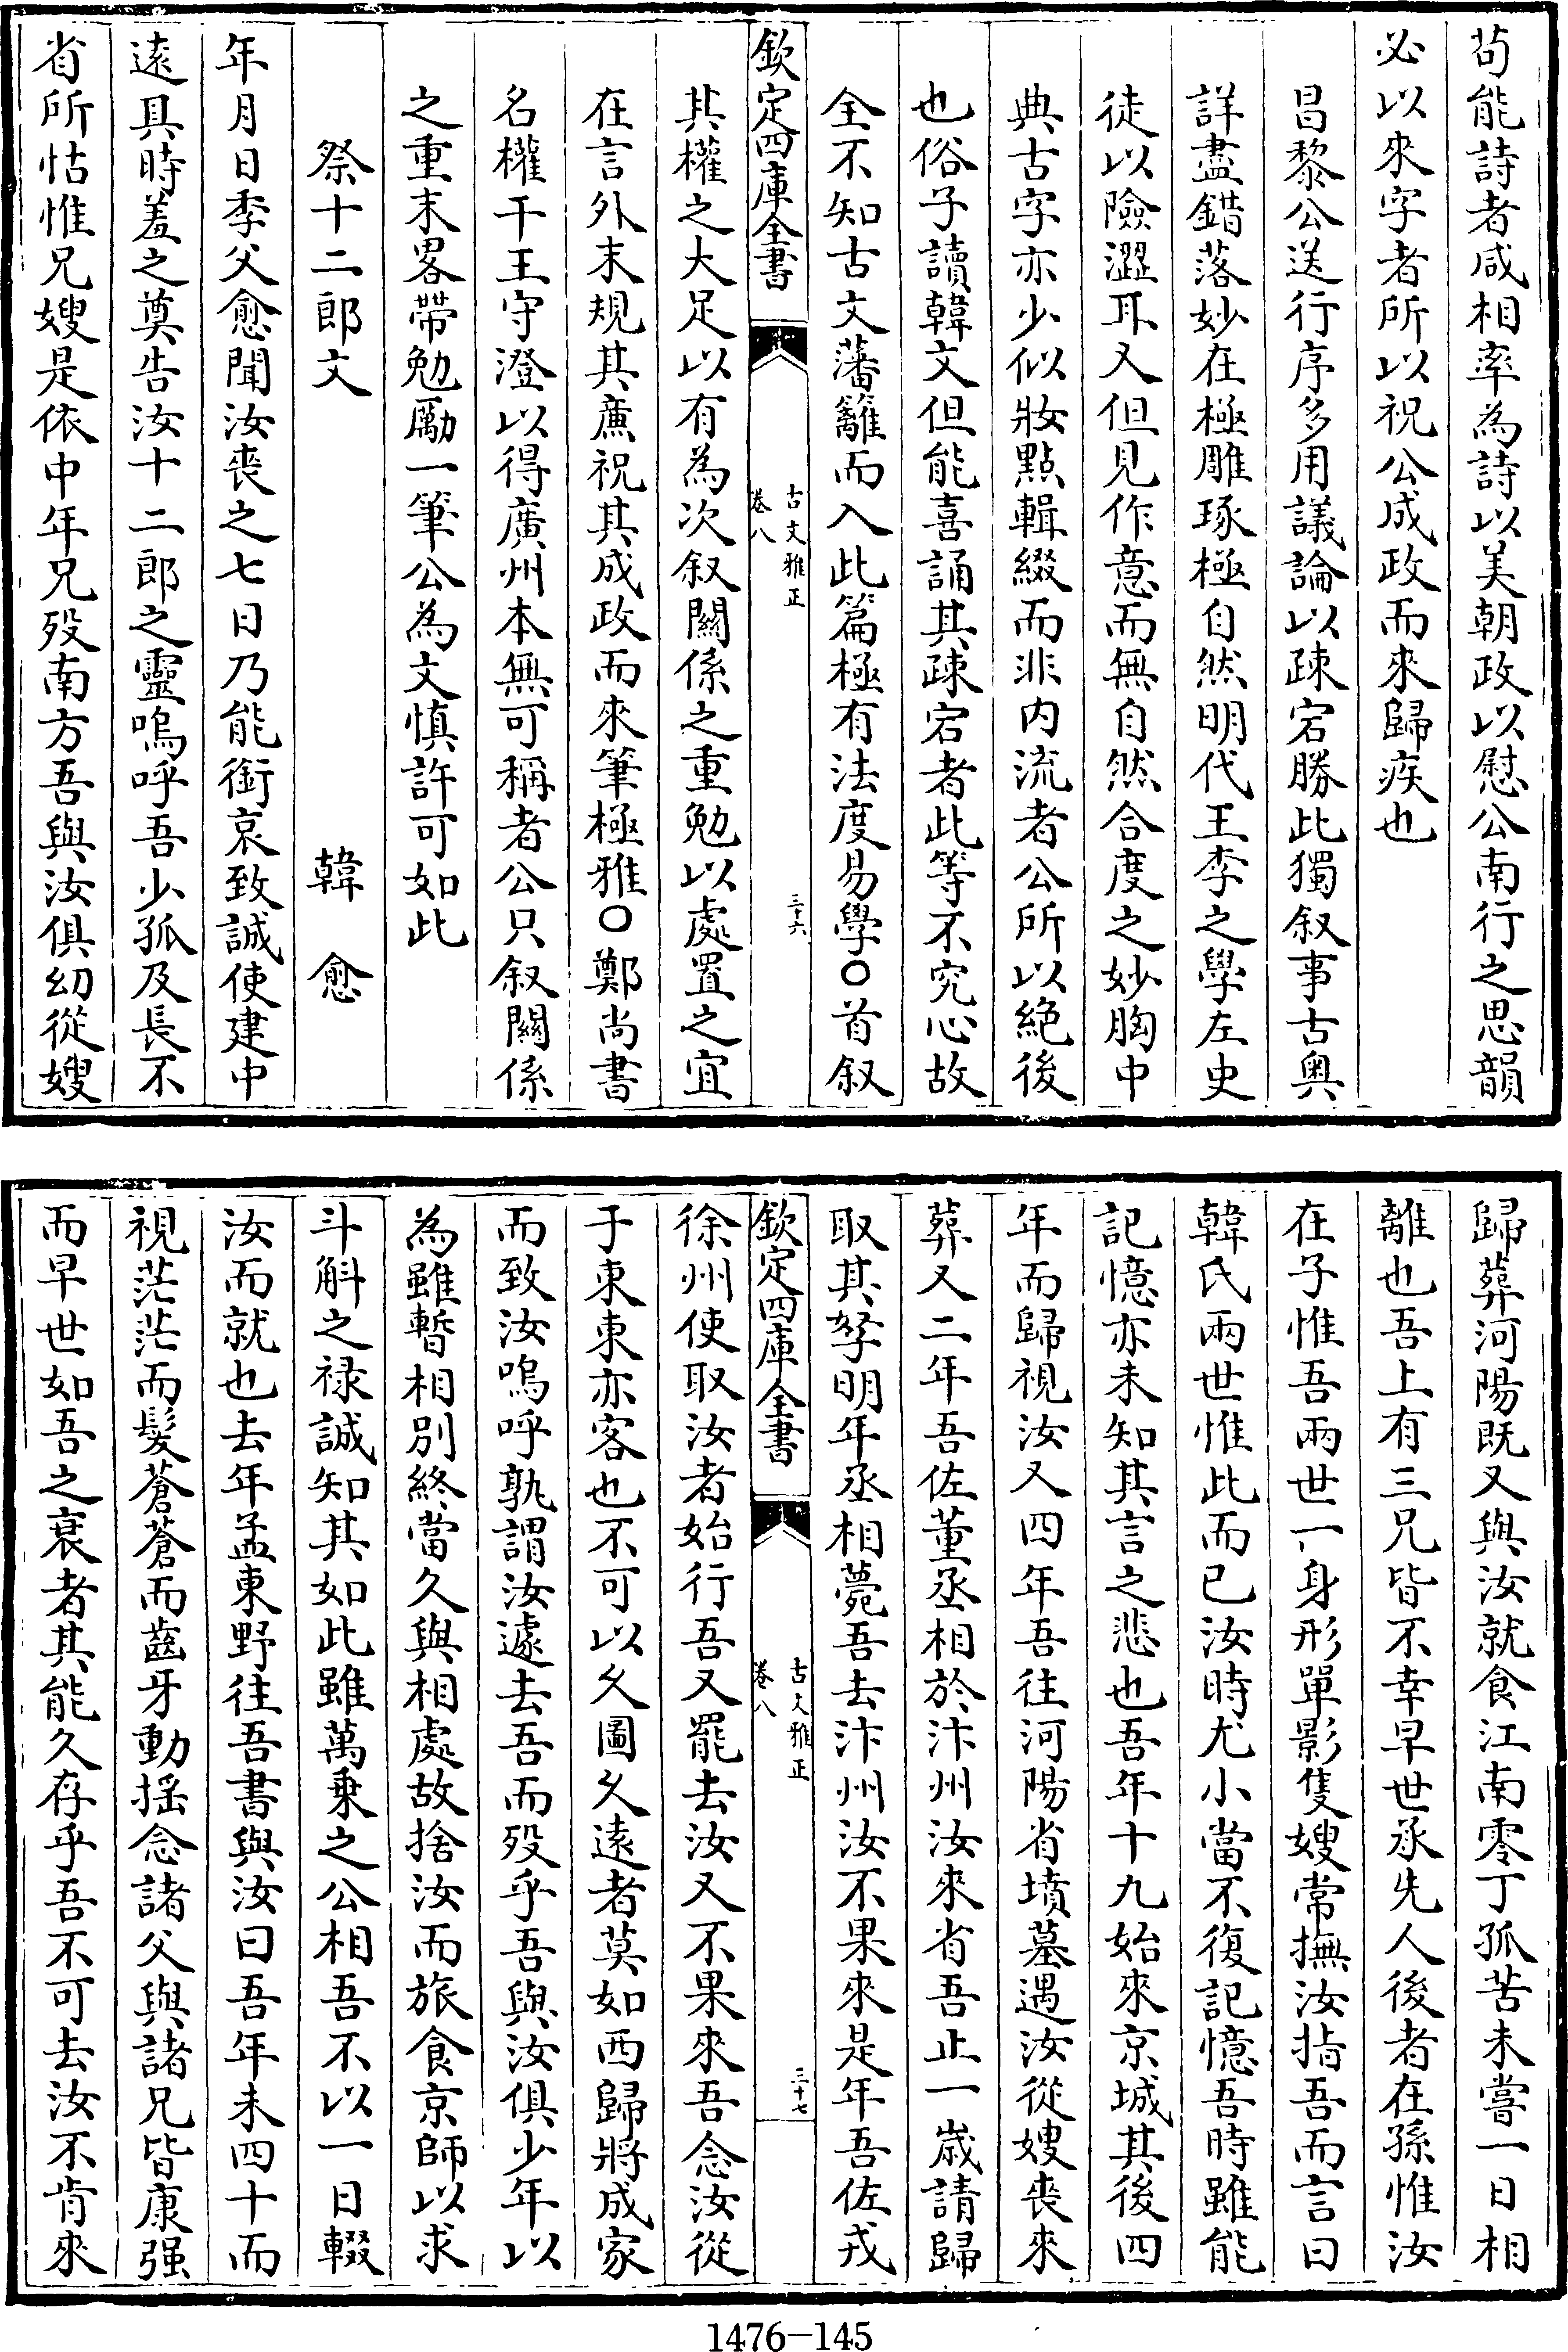 苟能詩者咸相率為詩以美朝政以慰公南行之思韻
必以來字者所以祝公成政而來歸疾也
昌黎公送行序多用議論以疎宕勝此獨叙事古奥
詳盡錯落妙在極雕琢極自然明代王李之學左史
徒以險澀耳又但見作意而無自然合度之妙胸中
典古字亦少似妝點輯綴而非内流者公所以絶後
也俗子讀韓文但能喜誦其疎宕者此等不究心故
全不知古文藩籬而入此篇極有法度易學○首叙
欽定四庫全書
古文雅正
卷八
三十六
其權之大足以有為次叙關係之重勉以處置之宜
在言外末規其廉祝其成政而來筆極雅○鄭尚書
名權干王守澄以得廣州本無可稱者公只叙關係
之重末畧帶勉勵一筆公為文慎許可如此
祭十二郎文 韓愈
年月日季父愈聞汝喪之七日乃能銜哀致誠使建中
遠具時羞之奠告汝十二郎之靈嗚呼吾少孤及長不
省所怙惟兄嫂是依中年兄歿南方吾與汝俱幼從嫂
歸葬河陽既又與汝就食江南零丁孤苦未嘗一日相
離也吾上有三兄皆不幸早世承先人後者在孫惟汝
在子惟吾兩世一身形單影隻嫂常撫汝指吾而言曰
韓氏兩世惟此而已汝時尤小當不復記憶吾時雖能
記憶亦未知其言之悲也吾年十九始來京城其後四
年而歸視汝又四年吾往河陽省墳墓遇汝從嫂喪來
葬又二年吾佐董丞相於汴州汝來省吾止一歲請歸
取其孥明年丞相薨吾去汴州汝不果來是年吾佐戎
欽定四庫全書
古文雅正
卷八
三十七
徐州使取汝者始行吾又罷去汝又不果來吾念汝從
于東東亦客也不可以久圖久遠者莫如西歸將成家
而致汝嗚呼孰謂汝遽去吾而歿乎吾與汝俱少年以
為雖暫相別終當久與相處故捨汝而旅食京師以求
斗斛之禄誠知其如此雖萬乗之公相吾不以一日輟
汝而就也去年孟東野往吾書與汝曰吾年未四十而
視茫茫而髮蒼蒼而齒牙動揺念諸父與諸兄皆康强
而早世如吾之衰者其能久存乎吾不可去汝不肯來
1476-145